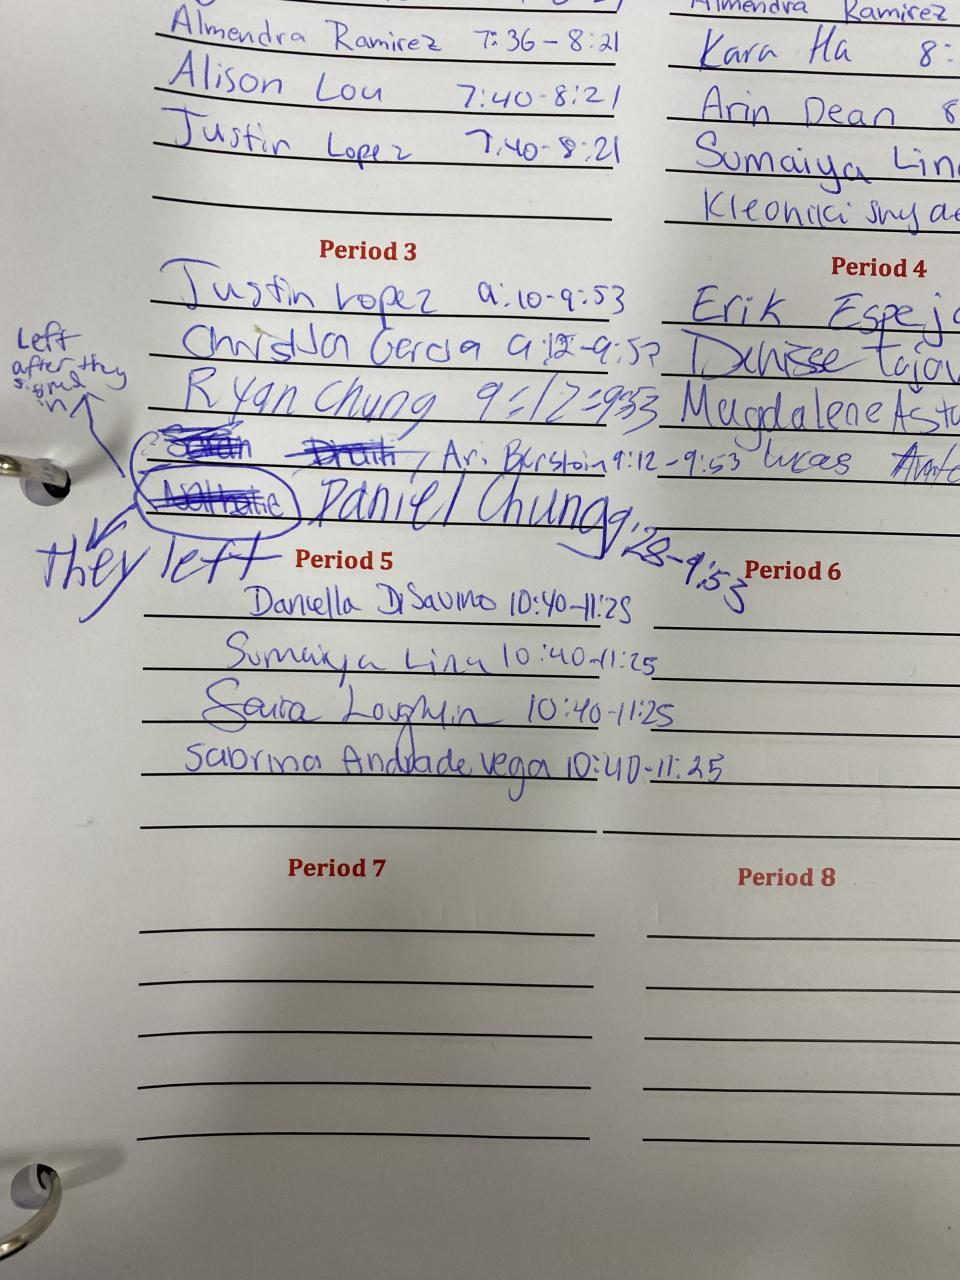 Almendra Ramirez 7:36-8:21
Alison Lou 7:40-8:21
Justin Lopez 7:40-8:21
Almendra Ramirez
Kara Ha 8:
Arin Dean 8
Sumaiya Lin
Kleoniki
Period 3
Justin Lopez 9:10-9:53
Garcia 9:12-9:53
Ryan Chung 9:12-9:53
Ari Berstein 9:12-9:53
Daniel Chung 9:28-9:53
Left
after they
signed
in
they left
Period 4
Erik Espejo
Denisse
Magdalene
Lucas
Period 5
Daniella DiSavino 10:40-11:25
Sumaiya Lina 10:40-11:25
Saira Loughlin 10:40-11:25
Sabrina Andrade Vega 10:40-11:25
Period 6
Period 7
Period 8